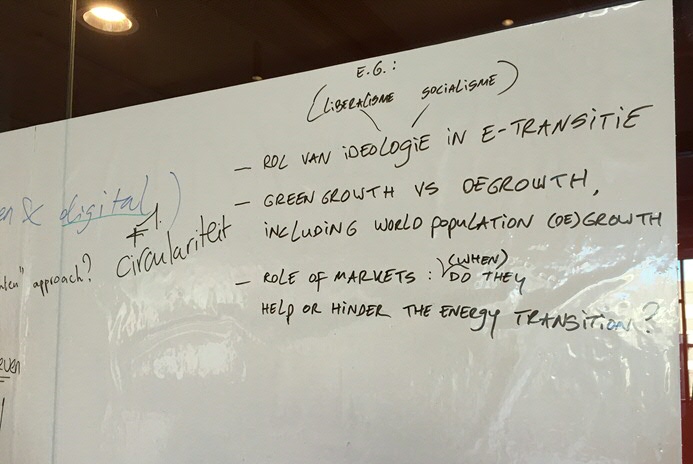 E.G.:
(LIBERALISME SOCIALISME)
- ROL VAN IDEOLOGIE IN E-TRANSITIE
- GREEN GROWTH VS DEGROWTH,
INCLUDING WORLD POPULATION (DE)GROWTH
- ROLE OF MARKETS: (WHEN) DO THEY
HELP OR HINDER THE ENERGY TRANSITION?
& digital)
circulariteit
approach?